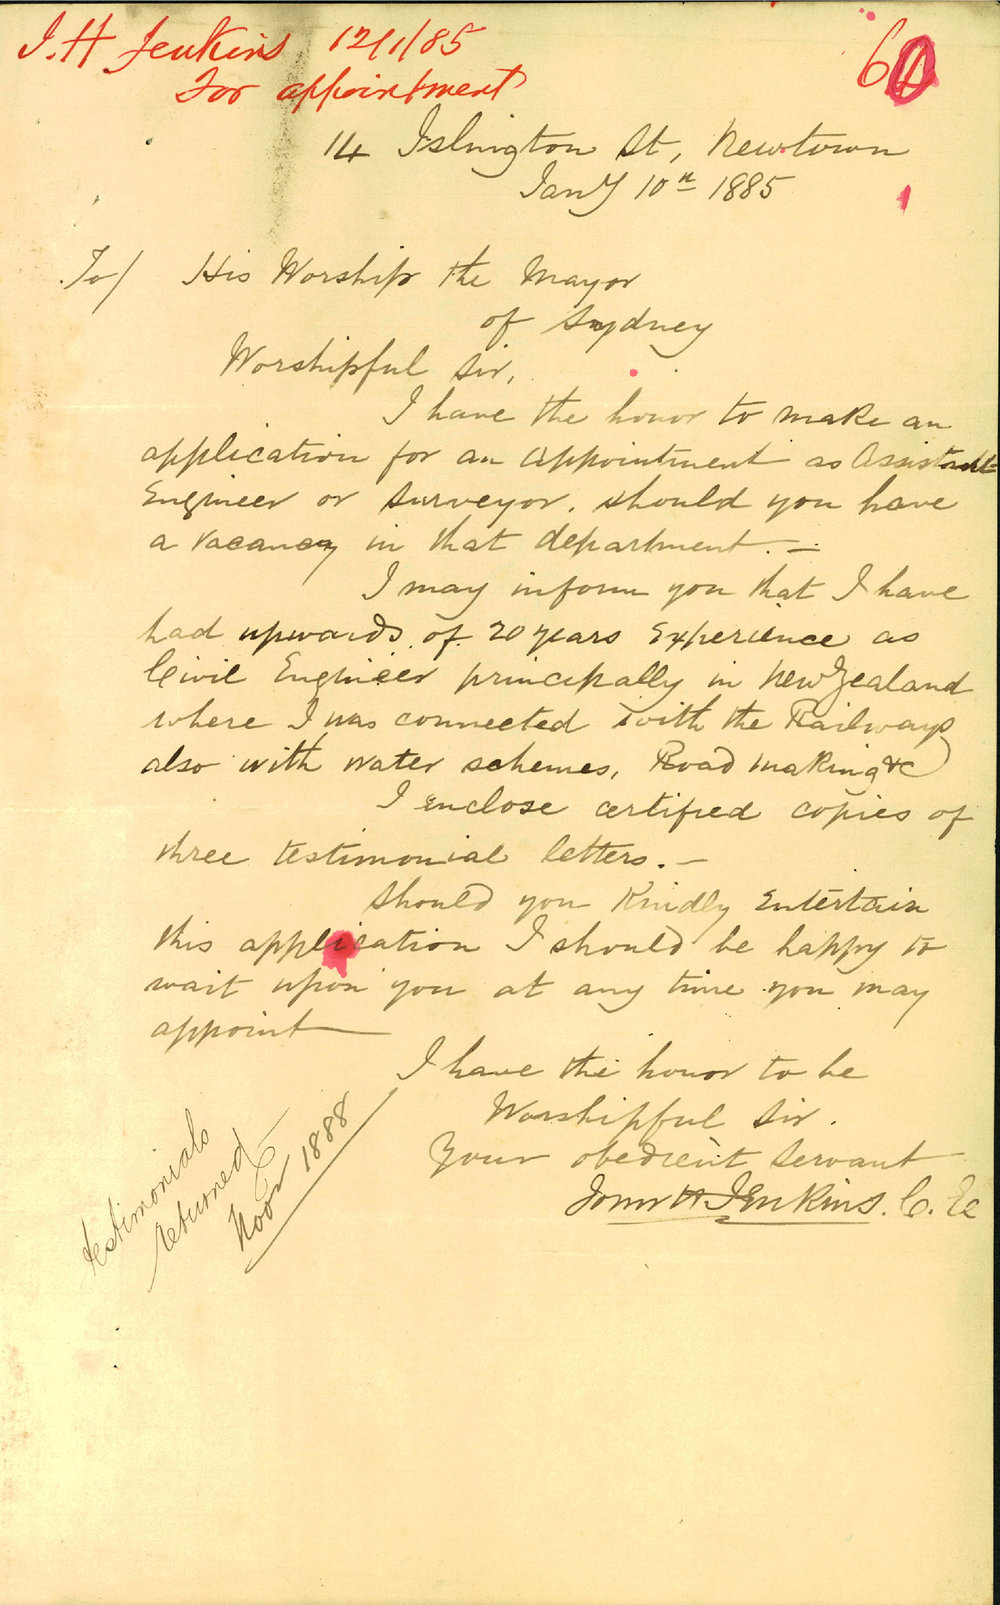 J. H Jenkins 12/1/85
60
For appointment
14 Islington St, Newtown
Jany 10th 1885
To/ His Worship the Mayor
of Sydney
Worshipful Sir,
I have the honor to make an
application for an appointment as Assistant
Engineer or Surveyor. Should you have
a vacancy in that department. —
I may inform you that I have
had upwards of 20 years Experience as
Civil Engineer principally in New Zealand
where I was connected with the Railways
also with water schemes, Road making &c
I Enclose certified copies of
three testimonial letters. —
Should you Kindly Entertain
this application I should be happy to
wait upon you at any time you may
appoint —
I have the honor to be
Worshipful Sir.
Your obedient Servant
John H Jenkins. C. E
testimonials
returned
Novr 1888